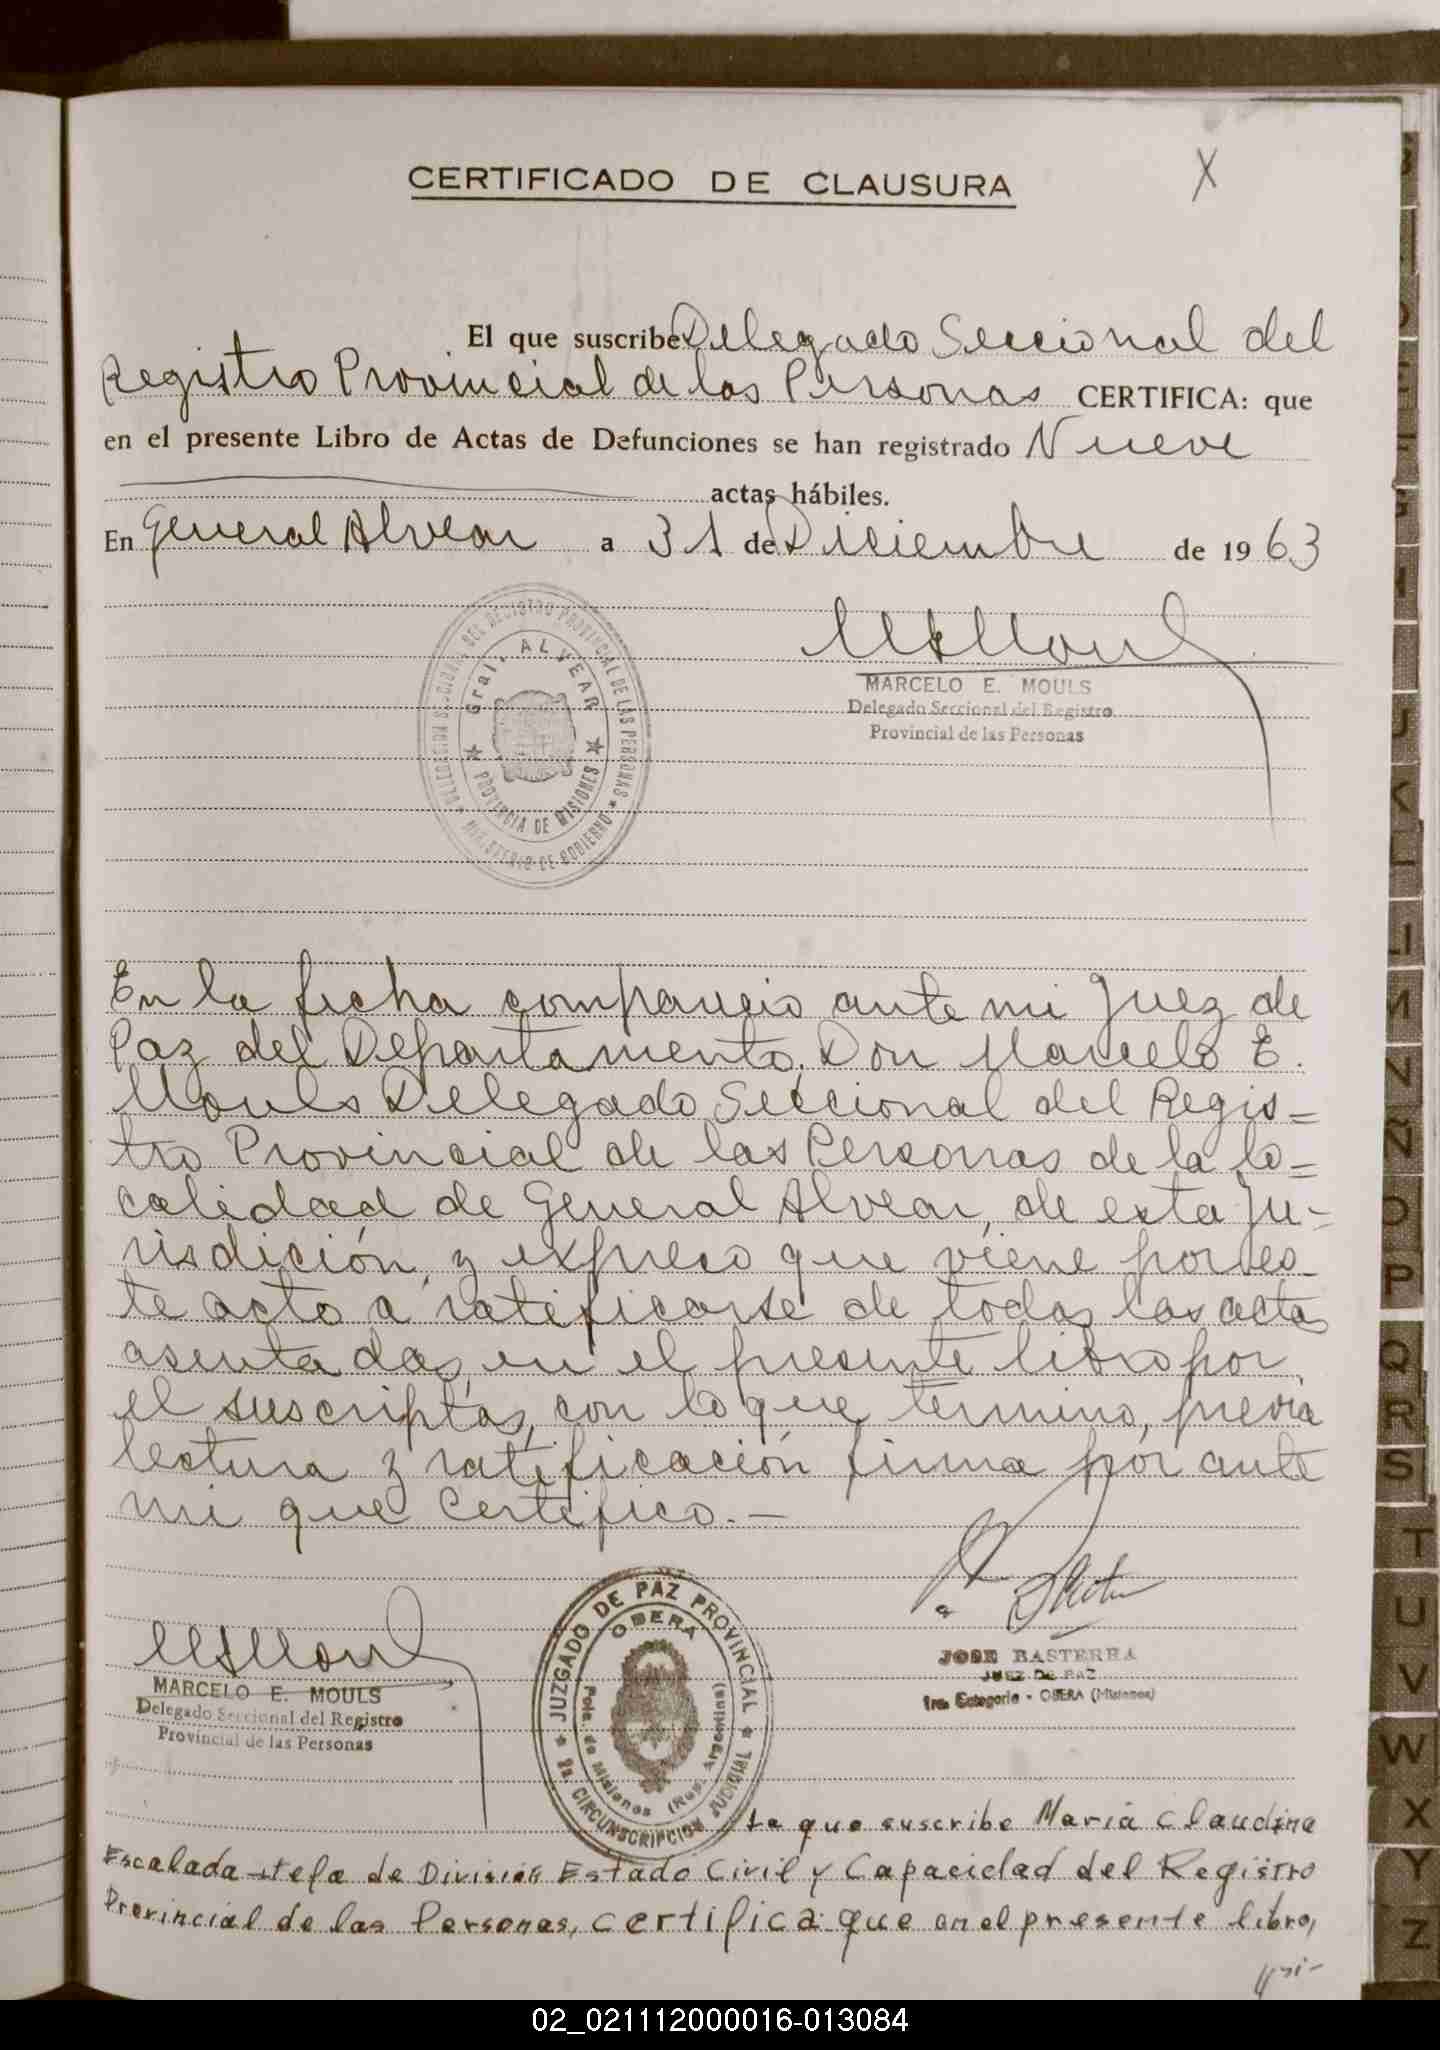 CERTIFICADO DE CLAUSURA
X
El que suscribe Delegado Seccional del
Registro Provincial de las Personas CERTIFICA: que
en el presente Libro de Actas de Defunciones se han registrado Nueve
actas hábiles.
En General Alvear a 31 de Diciembre de 1963
DELEGACION SECCIONAL DEL REGISTRO PROVINCIAL DE LAS PERSONAS
Gral. ALVEAR
PROVINCIA DE MISIONES
MINISTERIO DE GOBIERNO
MARCELO E. MOULS
Delegado Seccional del Registro
Provincial de las Personas
En la fecha comparecio ante mi Juez de
Paz del Departamento, Don Marcelo E.
Mouls Delegado Seccional del Regis=
tro Provincial de las Personas de la lo=
calidad de General Alvear, de esta Ju-
risdición, y expreso que viene por es-
te acto a ratificarse de todas las actas
asentadas en el presente libro por
el suscriptas, con lo que termino, previa
lectura y ratificación firma por ante
mi que certifico.—
MARCELO E. MOULS
Delegado Seccional del Registro
Provincial de las Personas
JUZGADO DE PAZ PROVINCIAL
OBERA
Pcia. de Misiones (Rep. Argentina)
2a. CIRCUNSCRIPCION JUDICIAL
JOSE BASTERRA
JUEZ DE PAZ
1ra. Categoria - OBERA (Misiones)
La que suscribe Maria Claudina
Escalada Jefa de División Estado Civil y Capacidad del Registro
Provincial de las Personas, certifica que en el presente libro,
J
K
L
M
N
Ñ
O
P
Q
R
S
T
U
V
W
X
Y
Z
02_021112000016-013084